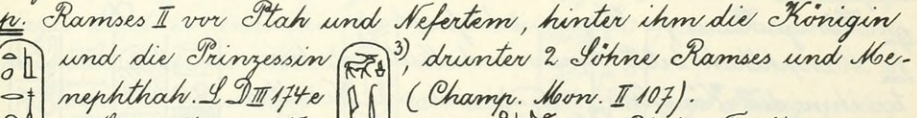 p. Ramses II vor Ptah und Nefertem, hinter ihm die Königin
und die Prinzessin 3), drunter 2 Söhne Ramses und Me-
nephthah. L D III 174e (Champ. Mon. II 107).